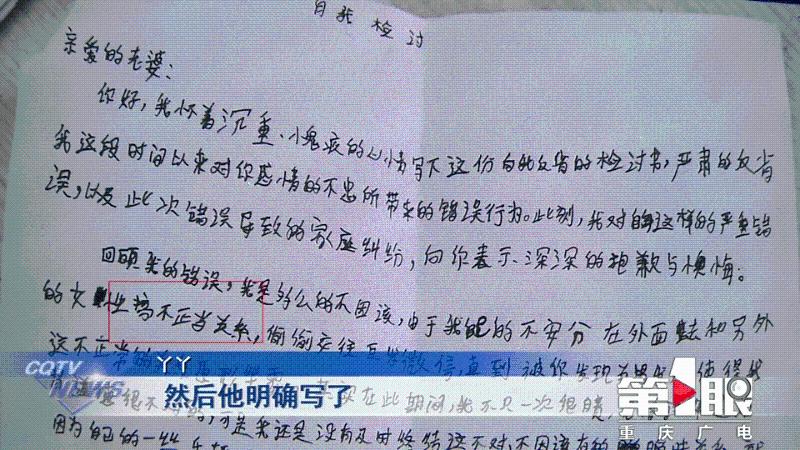 自我检讨
亲爱的老婆：
你好，我怀着沉重、愧疚的心情写下这份自我反省的检讨书，严肃的反省
我这段时间以来对你感情的不忠所带来的错误行为。此刻，我对自己这样的严重错
误，以及此次错误导致的家庭纠纷，向你表示深深的抱歉与懊悔。
回顾我的错误，我是多么的不因该，由于我的不安分在外面和另外
的女生搞不正当关系，偷偷交往互发微信，直到被你发现
这不正常的
在此期间，我不只一次很
因为自己的一些
可是我还是没有及时终结这不对，不因该有的
CQTV
NEWS
丫丫
然后他明确写了
第1眼
重庆广电